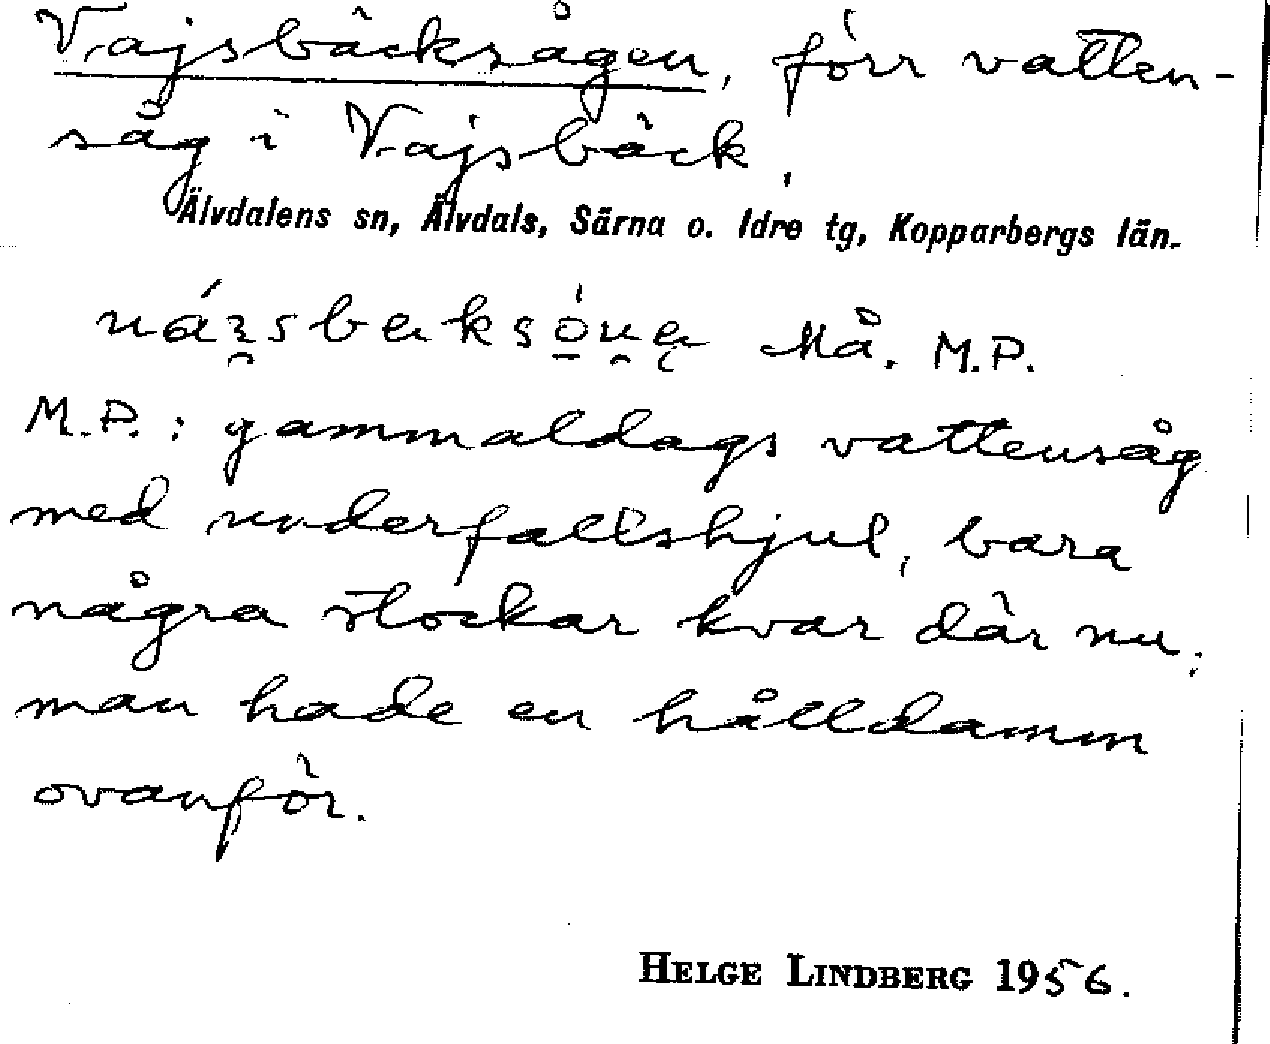 Vajsbäcksågen, förr vatten-
såg i Vajsbäck.
Älvdalens sn, Älvdals, Särna o. Idre tg, Kopparbergs län.
Må. M.P.
M.P.: gammaldags vattensåg
med underfallshjul, bara
några stockar kvar där nu;
man hade en hålldamm
ovanför.
HELGE LINDBERG 1956.